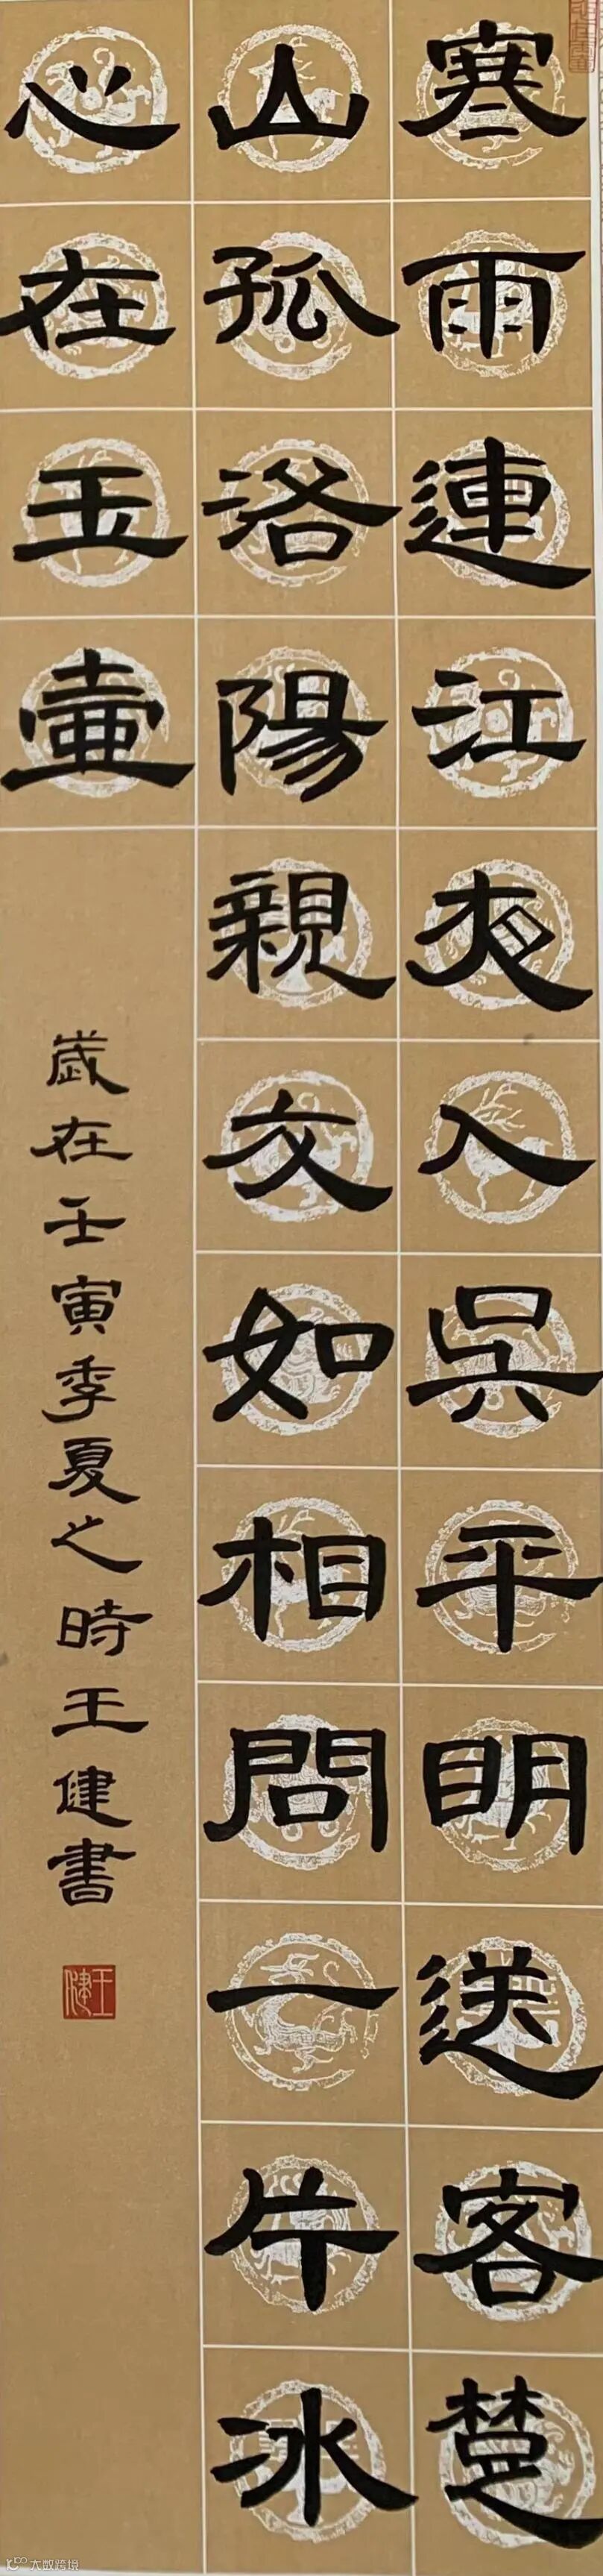 寒雨連江夜入吳平明送客楚
山孤洛陽親友如相問一片冰
心在玉壺
歲在壬寅季夏之時王健書
王健
大数跨境